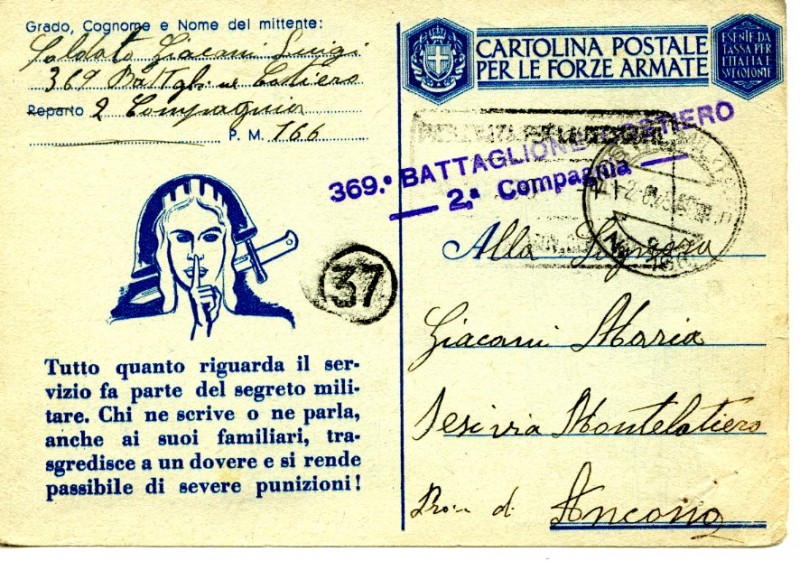 Grado, Cognome e Nome del mittente:
Soldato Giacani Luigi
369 Battgl. ne Costiero
Reparto 2 Compagnia
P. M. 166
CARTOLINA POSTALE
PER LE FORZE ARMATE
ESENTE DA
TASSA PER
L'ITALIA E
SVE COLONIE
369.º BATTAGLIONE COSTIERO
2.ª Compagnia
37
Tutto quanto riguarda il ser-
vizio fa parte del segreto mili-
tare. Chi ne scrive o ne parla,
anche ai suoi familiari, tra-
sgredisce a un dovere e si rende
passibile di severe punizioni!
Alla Signora
Giacani Maria
Jesi via
Ancona